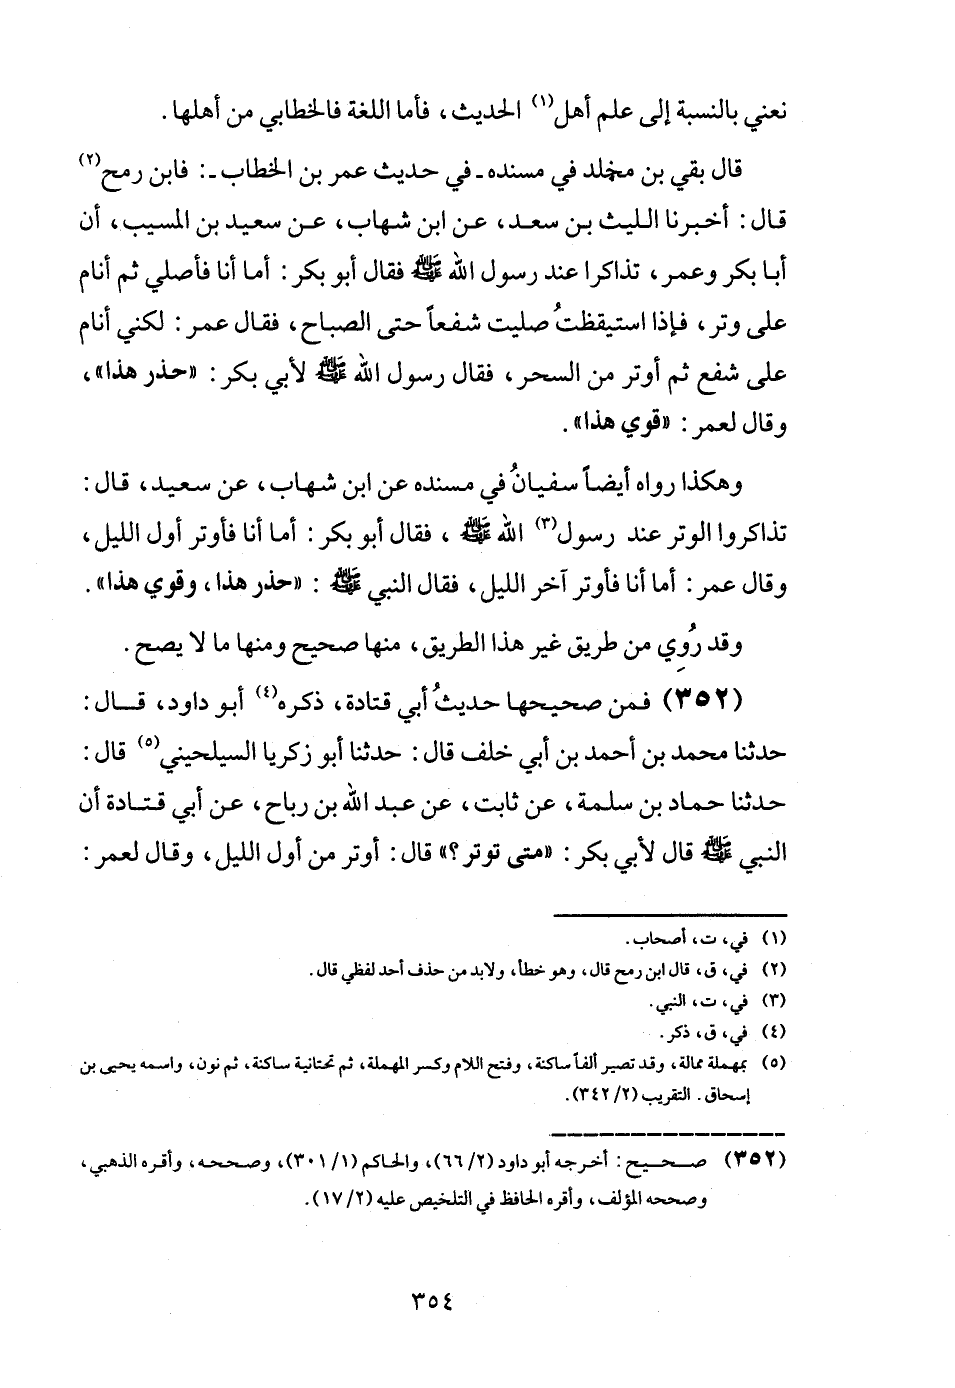 نعني بالنسبة إلى علم أهل(١) الحديث، فأما اللغة فالخطابي من أهلها.
قال بقي بن مخلد في مسنده ـ في حديث عمر بن الخطاب ـ: فابن رمح(٢)
قال: أخبرنا الليث بن سعد، عن ابن شهاب، عن سعيد بن المسيب، أن
أبا بكر وعمر، تذاكرا عند رسول الله ﷺ فقال أبو بكر: أما أنا فأصلي ثم أنام
على وتر، فإذا استيقظتُ صليت شفعاً حتى الصباح، فقال عمر: لكني أنام
على شفع ثم أوتر من السحر، فقال رسول الله ﷺ لأبي بكر: «حذر هذا»،
وقال لعمر: «قوي هذا».
وهكذا رواه أيضاً سفيانُ في مسنده عن ابن شهاب، عن سعيد، قال:
تذاكروا الوتر عند رسول(٣) الله ﷺ، فقال أبو بكر: أما أنا فأوتر أول الليل،
وقال عمر: أما أنا فأوتر آخر الليل، فقال النبي ﷺ: «حذر هذا، وقوي هذا».
وقد رُوِي من طريق غير هذا الطريق، منها صحيح ومنها ما لا يصح.
(٣٥٢) فمن صحيحها حديثُ أبي قتادة، ذكره(٤) أبو داود، قال:
حدثنا محمد بن أحمد بن أبي خلف قال: حدثنا أبو زكريا السيلحيني(٥) قال:
حدثنا حماد بن سلمة، عن ثابت، عن عبد الله بن رباح، عن أبي قتادة أن
النبي ﷺ قال لأبي بكر: «متى توتر؟» قال: أوتر من أول الليل، وقال لعمر:
(١) في، ت، أصحاب.
(٢) في، ق، قال ابن رمح قال، وهو خطأ، ولابد من حذف أحد لفظي قال.
(٣) في، ت، النبي.
(٤) في، ق، ذكر.
(٥) بمهملة ممالة، وقد تصير ألفاً ساكنة، وفتح اللام وكسر المهملة، ثم تحتانية ساكنة، ثم نون، واسمه يحيى بن
إسحاق. التقريب (٣٤٢/٢).
(٣٥٢) صحيح: أخرجه أبو داود (٦٦/٢)، والحاكم (٣٠١/١)، وصححه، وأقره الذهبي،
وصححه المؤلف، وأقره الحافظ في التلخيص عليه (١٧/٢).
٣٥٤